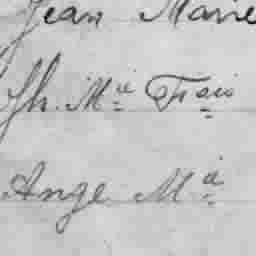 Jean Marie
Jh. Mie Frais
Ange Mie